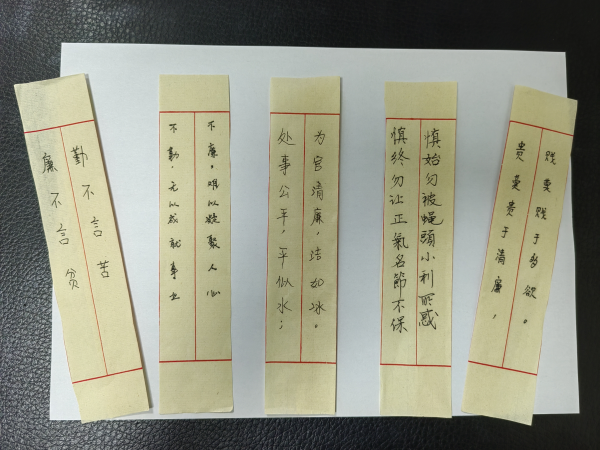 廉不言贫
勤不言苦
不勤，无以成就事业
不廉，难以凝聚人心
处事公平，平似水；
为官清廉，洁如冰。
慎始勿被蝇頭小利所惑
慎终勿让正氣名節不保
贵莫贵于清廉，
贱莫贱于多欲。